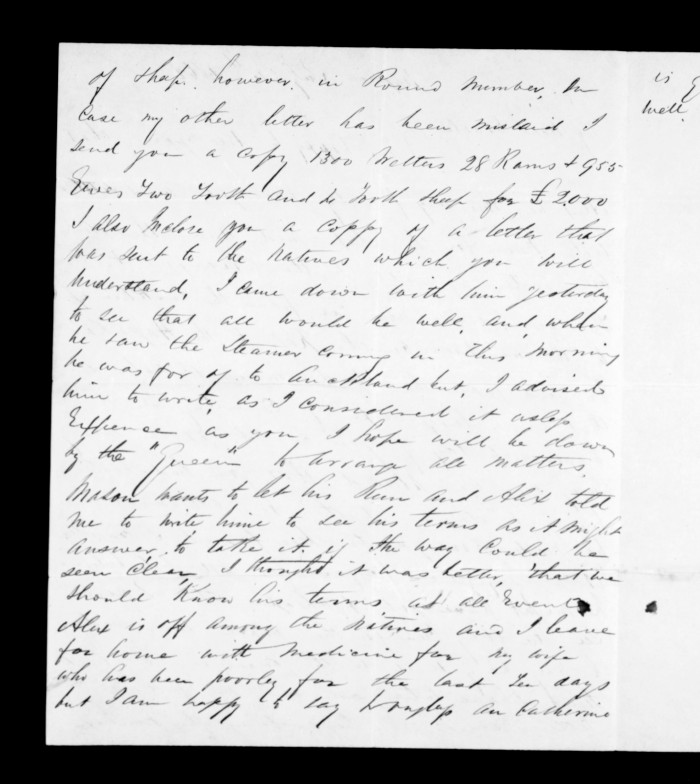 of sheep. however. in Round Number. In
Case my other letter has been mislaid I
send you a Copy 1300 Wetters 28 Rams & 955
Ewes Two Tooth and do Tooth sheep for £2.000
I also Inclose you a Coppy of a letter that
was sent to the Natives which you will
Understand, I came down with him yesterday
to see that all would be well, and when
he saw the Steamer Coming in this Morning
he was for of to Auckland but, I advised
him to write, as I considered it
Expence as you, I hope will be down
by the "Queen" to arrange all matters.
Mason wants to let his Run and Alix told
me to write hime to see his terms as it might
answer, to take it if the way Could be
seen Clear, I thought, it was better, that we
should Know his terms, at all Events
Alix is off among the Natives and I leave
for home with Medicine for my wife
who has been poorly for the last Ten days
but I am happy to say an Catherine
is
well.